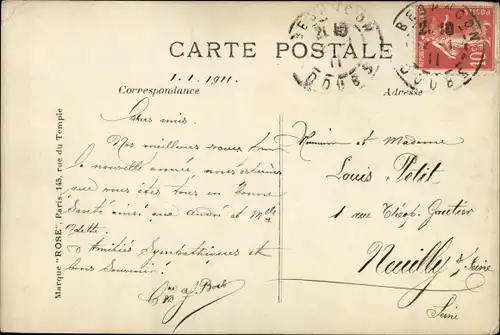 CARTE POSTALE
1.1.1911.
Correspondance
Adresse
Marque "ROSE", Paris, 145, rue du Temple
BESANÇON
DOUBS
10
Chers amis.
Nos meilleurs vœux pour
la nouvelle année
que vous êtes tous en bonne
Santé ainsi que André et Melle
d'Amitiés Sympathiques et
bons Souvenirs.
Monsieur et Madame
Louis Petit
1 rue Théop. Gautier
Neuilly s/ Seine
Seine